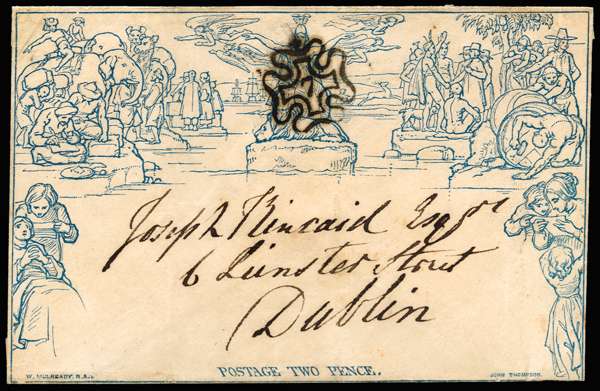 Joseph Kincaid Esqre
6 Leinster Street
Dublin
W. MULREADY, R.A.
POSTAGE TWO PENCE.
JOHN THOMPSON.